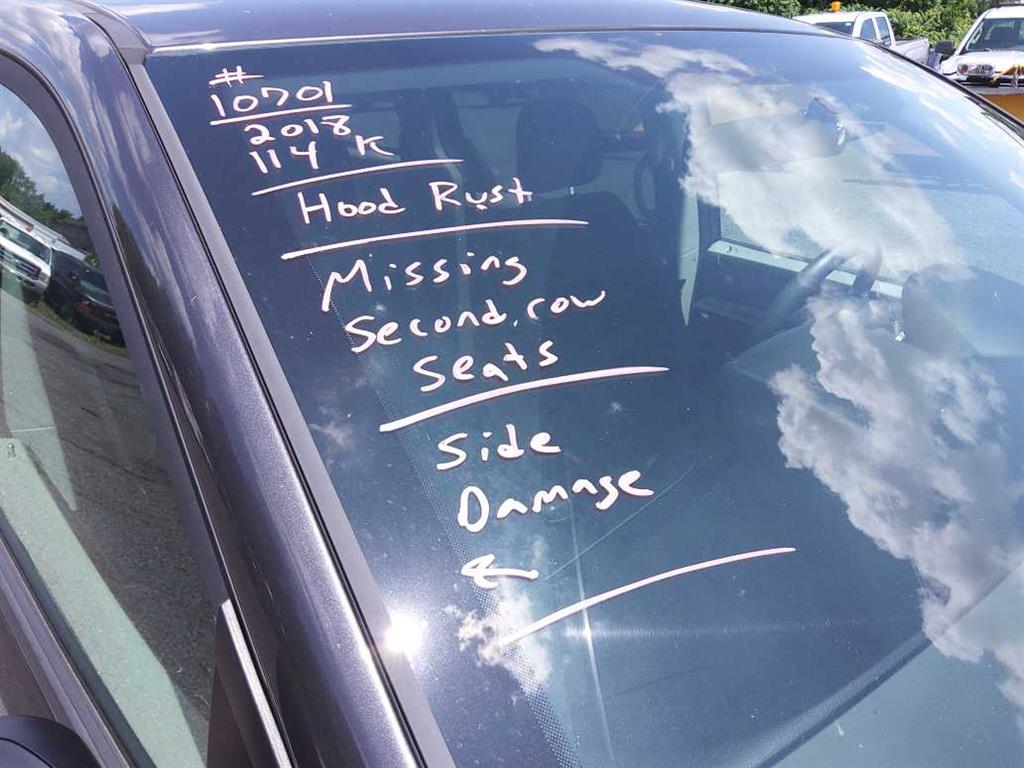 #
10701
2018
114 K
Hood Rust
Missing
Second row
Seats
Side
Damage
←